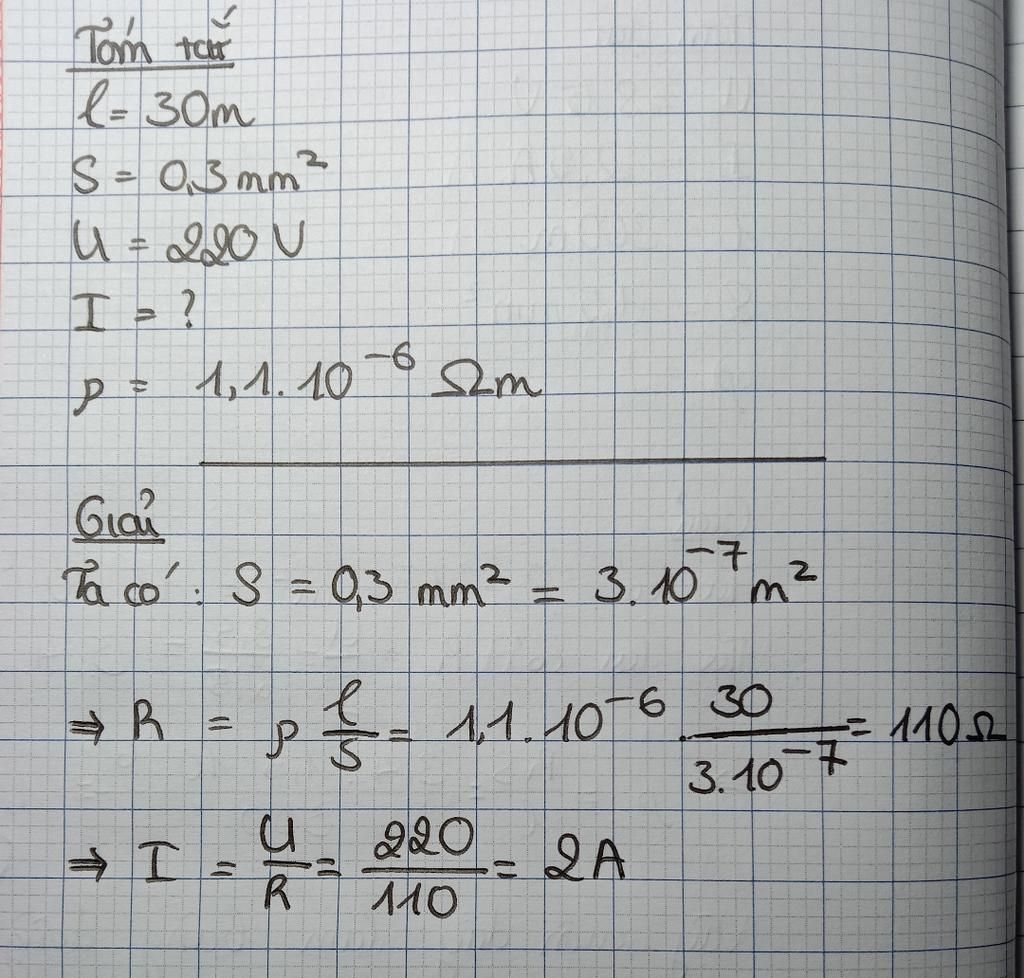 Tóm tắt
l = 30m
S = 0,3 mm²
U = 220 V
I = ?
ρ = 1,1.10⁻⁶ Ωm
Giải
Ta có: S = 0,3 mm² = 3.10⁻⁷ m²
⇒ R = ρ l/S = 1,1.10⁻⁶ . 30/3.10⁻⁷ = 110Ω
⇒ I = U/R = 220/110 = 2A